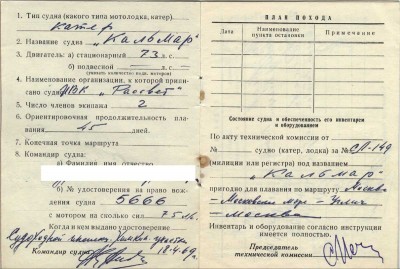 1. Тип судна (какого типа мотолодка, катер)
катер
2. Название судна „Кальмар"
3. Двигатель: а) стационарный 73 л.с.
б) подвесной — л.с.
(указать количество подв. моторов)
4. Наименование организации, к которой приписано судно МВК „Рассвет"
5. Число членов экипажа 2
6. Ориентировочная продолжительность плавания 45 дней.
7. Конечная точка маршрута
8. Командир судна:
а) Фамилия, имя, отчество
б) № удостоверения на право вождения судна 5666
с мотором на сколько сил 75 л.с.
Когда и кем выдано удостоверение
Судоходной
Командир судна 18.4.69г.
ПЛАН ПОХОДА
Дата
Наименование пункта остановки
Примечание
Состояние судна и обеспеченность его инвентарем и оборудованием
По акту технической комиссии от
№ судно (катер, лодка) за №
(милиции или регистра) под названием
„Кальмар"
пригодно для плавания по маршруту Москва
– Московское море – Углич
– Москва
Инвентарь и оборудование согласно инструкции имеется полностью.
Председатель
технической комиссии